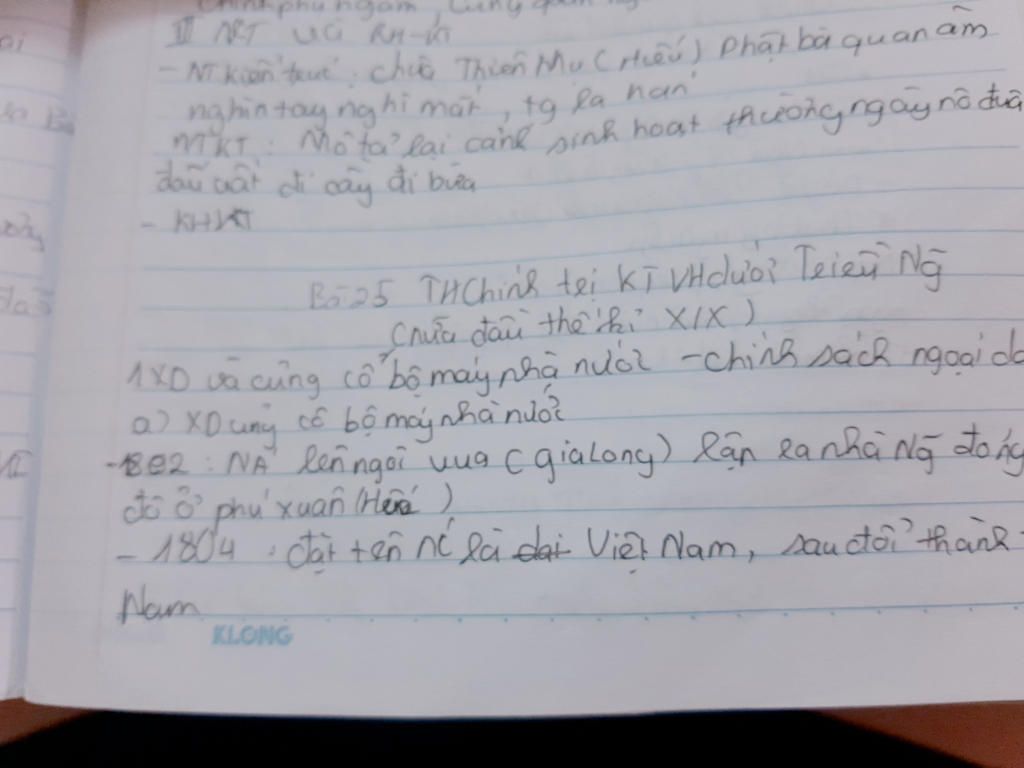 Chinh phụ ngâm, Cung
III NT và KH-KT
- NT kiến trúc: chùa Thiên Mụ (Huế) Phật bà quan âm
nghìn tay nghì mắt, tg la hán
NTKT: Mô tả lại cảnh sinh hoạt thường ngày nô đùa
đấu vật đi cày đi bừa
- KHKT
Bài 25 TH Chính trị KT VH dưới Triều Ng̃
(nửa đầu thế kỉ XIX)
1 XD và củng cố bộ máy nhà nước - chính sách ngoại
a) XD củng cố bộ máy nhà nước
- 1802: NA lên ngôi vua (Gia Long) lập ra nhà Ng̃ đóng
đô ở phú xuân (Huế)
- 1804: đặt tên nc là đại Việt Nam, sau đổi thành
Nam
KLONG